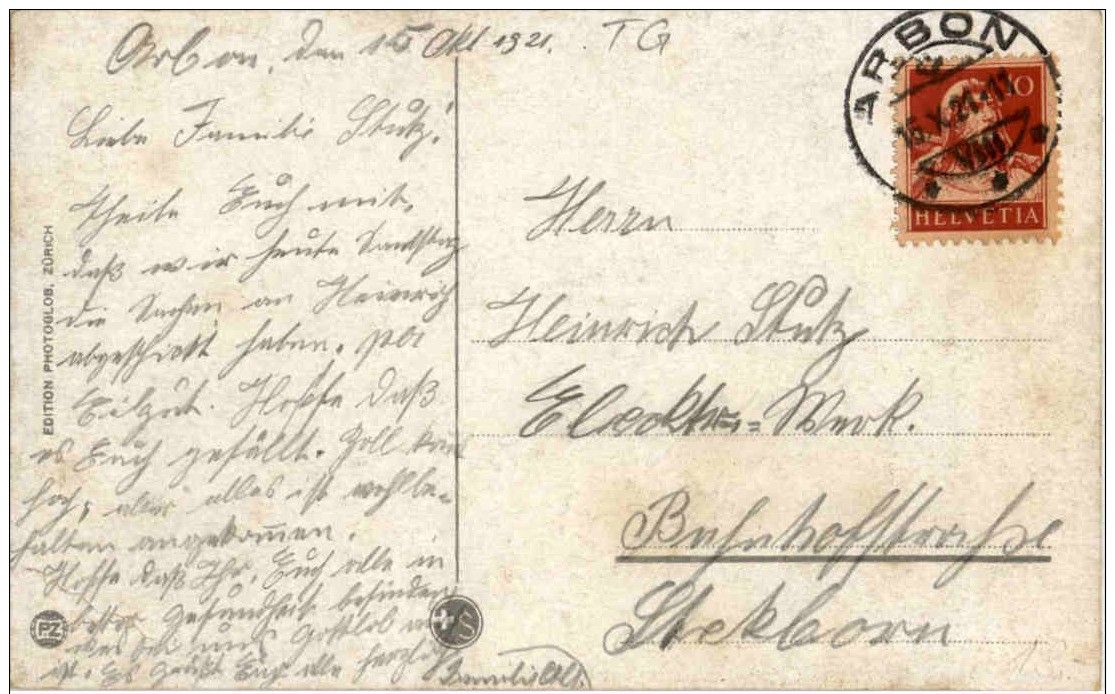 Arbon, den 15 Okt 1921. TG
Liebe Familie Stutz!
Theile Euch mit,
daß wir heute Samstag
die Sachen an Heinrich
abgeschickt haben, per
Eilgut. Hoffe daß
es Euch gefällt. Zoll
hoch, aber alles ist wohlbe-
halten angekommen.
Hoffe daß Ihr, Euch alle in
bester Gesundheit befindet
was bei uns Gottlob auch
ist. Es grüßt Euch alle herzlich
Familie
EDITION PHOTOGLOB, ZÜRICH
PZ
S
ARBON
15.X.21-11
VIII
10
HELVETIA
Herrn
Heinrich Stutz
Elecktr.=Werk.
Bahnhofstrasse
Steckborn